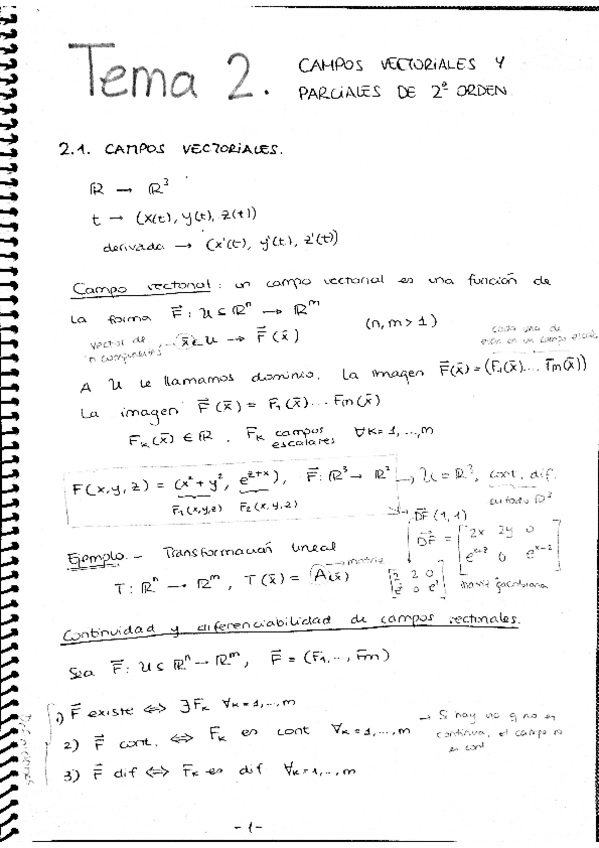 Tema 2. CAMPOS VECTORIALES Y
PARCIALES DE 2º ORDEN
2.1. CAMPOS VECTORIALES.
ℝ → ℝ³
t → (x(t), y(t), z(t))
derivada → (x'(t), y'(t), z'(t))
Campo vectorial: un campo vectorial es una función de
la forma F⃗: U ⊆ ℝⁿ → ℝᵐ
(n, m > 1)
vector de
n componentes
x̄ ∈ U → F⃗(x̄)
cada una de
ellas es un campo escalar
A U le llamamos dominio. La imagen F⃗(x̄) = (F₁(x̄)... Fm(x̄))
La imagen F⃗(x̄) = F₁(x̄)... Fm(x̄)
Fₖ(x̄) ∈ ℝ. Fₖ campos escalares ∀k=1,...,m
F(x,y,z) = (x²+y², e^(z+x)), F⃗: ℝ³ → ℝ² → U = ℝ³, cont, dif.
F₁(x,y,z) F₂(x,y,z)
en todo ℝ³
DF(1,1)
DF = [2x 2y 0
Ejemplo.- Transformación lineal
matriz
T: ℝⁿ → ℝᵐ, T(x̄) = A(x̄)
matriz jacobiana
Continuidad y diferenciabilidad de campos vectoriales.
Sea F⃗: U ⊂ ℝⁿ → ℝᵐ, F⃗ = (F₁,..., Fm)
1) F⃗ existe ⟺ ∃Fₖ ∀k=1,...,m
2) F⃗ cont. ⟺ Fₖ es cont ∀k=1,...,m
→ Si hay una q no es
continua, el campo no
es cont
3) F⃗ dif ⟺ Fₖ es dif ∀k=1,...,m
-1-